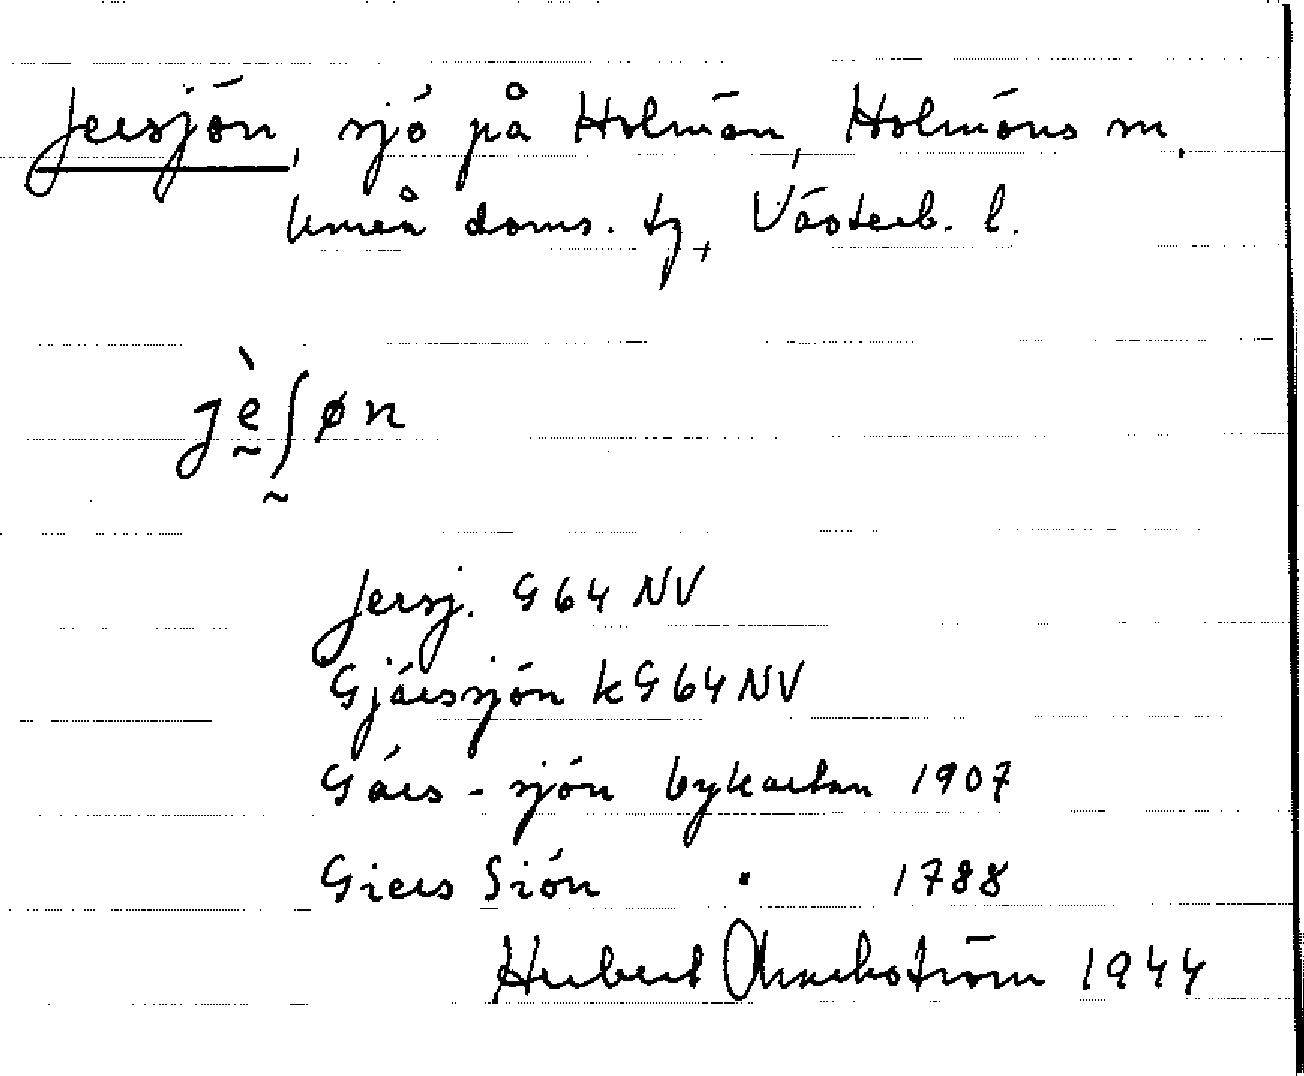 Jersjön, sjö på Holmön, Holmöns sn,
Umeå doms. tg, Västerb. l.
jḛ̀ʃ̰øn
Jersj. G 64 NV
Gjärssjön k G 64 NV
Gärs-sjön bykartan 1907
Giers Siön " 1788
Herbert 1944